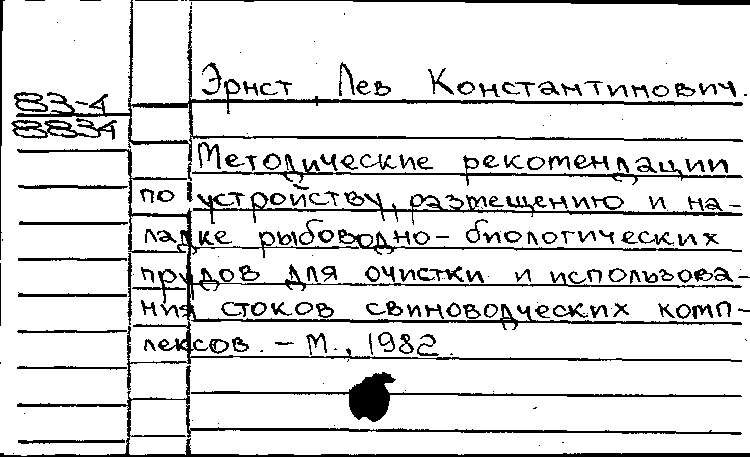 Эрнст, Лев Константинович.
83-4
8834
Методические рекомендации
по устройству, размещению и на-
ладке рыбоводно-биологических
прудов для очистки и использова-
ния стоков свиноводческих комп-
лексов. - М., 1982.